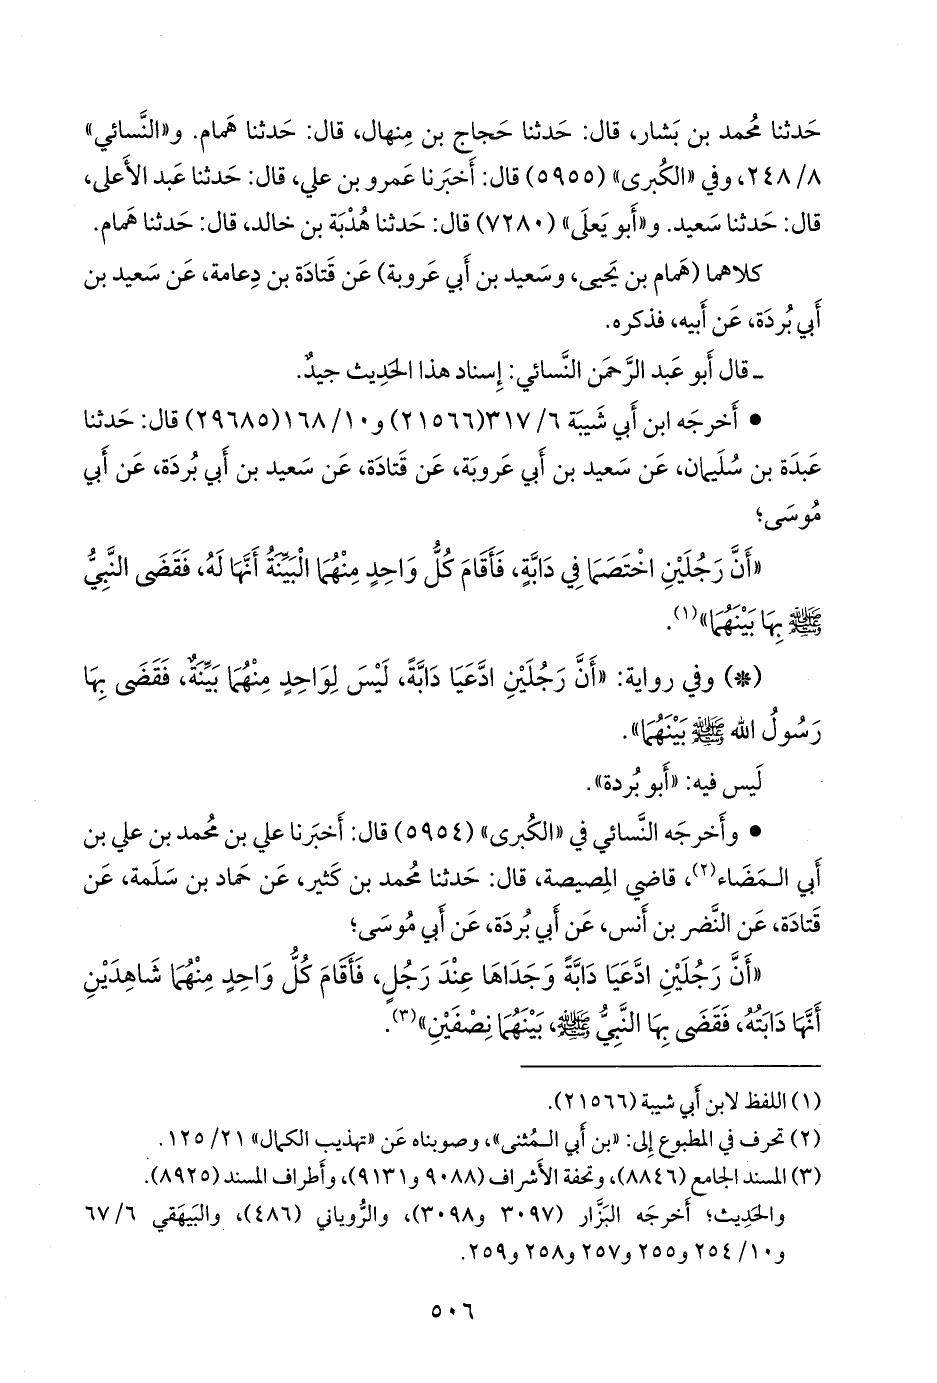 حَدثنا مُحمد بن بَشار، قال: حَدثنا حَجاج بن مِنهال، قال: حَدثنا هَمام. و«النَّسائي»
٨/ ٢٤٨، وفي «الكُبرى» (٥٩٥٥) قال: أَخبَرنا عَمرو بن علي، قال: حَدثنا عَبد الأَعلى،
قال: حَدثنا سَعيد. و«أَبو يَعلَى» (٧٢٨٠) قال: حَدثنا هُدْبَة بن خالد، قال: حَدثنا هَمام.
كلاهما (هَمام بن يَحيى، وسَعيد بن أَبي عَروبة) عَن قَتادَة بن دِعامة، عَن سَعيد بن
أَبي بُردَة، عَن أَبيه، فذكره.
ـ قال أَبو عَبد الرَّحمَن النَّسائي: إِسناد هذا الحَدِيث جيدٌ.
• أَخرجَه ابن أَبي شَيبَة ٦/ ٣١٧(٢١٥٦٦) و١٠/ ١٦٨(٢٩٦٨٥) قال: حَدثنا
عَبدَة بن سُلَيمان، عَن سَعيد بن أَبي عَروبَة، عَن قَتادَة، عَن سَعيد بن أَبي بُردَة، عَن أَبي
مُوسَى؛
«أَنَّ رَجُلَيْنِ اخْتَصَمَا فِي دَابَّةٍ، فَأَقَامَ كُلُّ وَاحِدٍ مِنْهُمَا الْبَيِّنَةُ أَنَّهَا لَهُ، فَقَضَى النَّبِيُّ
ﷺ بِهَا بَيْنَهُمَا»(١).
(*) وفي رواية: «أَنَّ رَجُلَيْنِ ادَّعَيَا دَابَّةً، لَيْسَ لِوَاحِدٍ مِنْهُمَا بَيِّنَةٌ، فَقَضَى بِهَا
رَسُولُ الله ﷺ بَيْنَهُمَا».
لَيس فيه: «أَبو بُردة».
• وأَخرجَه النَّسائي في «الكُبرى» (٥٩٥٤) قال: أَخبَرنا علي بن مُحمد بن علي بن
أَبي الـمَضَاء(٢)، قاضي المِصيصة، قال: حَدثنا مُحمد بن كَثير، عَن حَماد بن سَلَمة، عَن
قَتادَة، عَن النَّضر بن أَنس، عَن أَبي بُردَة، عَن أَبي مُوسَى؛
«أَنَّ رَجُلَيْنِ ادَّعَيَا دَابَّةً وَجَدَاهَا عِنْدَ رَجُلٍ، فَأَقَامَ كُلُّ وَاحِدٍ مِنْهُمَا شَاهِدَيْنِ
أَنَّهَا دَابَتُهُ، فَقَضَى بِهَا النَّبِيُّ ﷺ، بَيْنَهُمَا نِصْفَيْنِ»(٣).
(١) اللفظ لابن أَبي شيبة (٢١٥٦٦).
(٢) تحرف في المطبوع إلى: «بن أَبي الـمُثنى»، وصوبناه عَن «تهذيب الكمال» ٢١/ ١٢٥.
(٣) المسند الجامع (٨٨٤٦)، وتحفة الأَشراف (٩٠٨٨ و٩١٣١)، وأَطراف المسند (٨٩٢٥).
والحَدِيث؛ أَخرجَه البَزَّار (٣٠٩٧ و٣٠٩٨)، والرُّوياني (٤٨٦)، والبَيهَقي ٦/ ٦٧
و١٠/ ٢٥٤ و٢٥٥ و٢٥٧ و٢٥٨ و٢٥٩.
٥٠٦